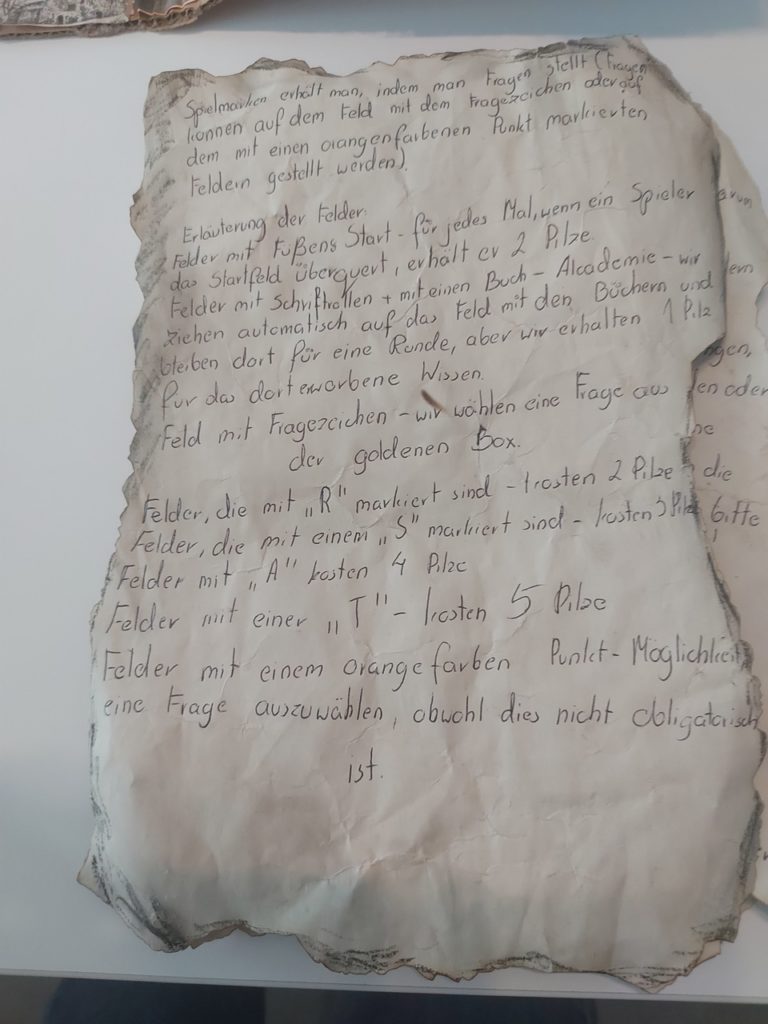 Spielmarken erhält man, indem man Fragen stellt (Fragen
können auf dem Feld mit dem Fragezeichen oder auf
dem mit einen orangenfarbenen Punkt markierten
Feldern gestellt werden).
Erläuterung der Felder:
Felder mit Fußens Start - für jedes Mal, wenn ein Spieler
das Startfeld überquert, erhält er 2 Pilze
Felder mit Schriftrollen + mit einen Buch - Alcademie - wir
ziehen automatisch auf das Feld mit den Büchern und
bleiben dort für eine Runde, aber wir erhalten 1 Pilz
für das dort erworbene Wissen.
Feld mit Fragezeichen - wir wählen eine Frage aus
der goldenen Box.
Felder, die mit „R" markiert sind - kosten 2 Pilze
Felder, die mit einem „S" markiert sind - kosten 3 Pilze
Felder mit „A" kosten 4 Pilze
Felder mit einer „T" - kosten 5 Pilze
Felder mit einem orangefarben Punkt - Möglichkeit
eine Frage auszuwählen, obwohl dies nicht obligatorisch
ist.
die
bitte